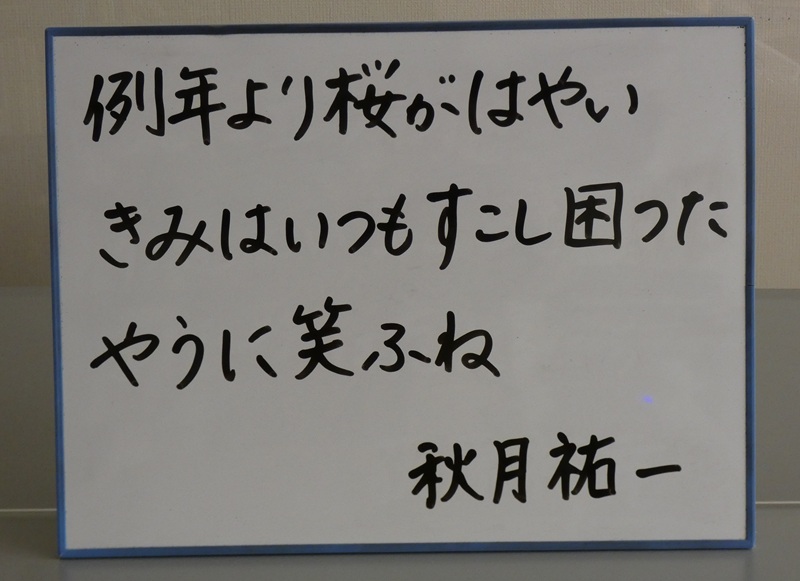 例年より桜がはやい
きみはいつもすこし困つた
やうに笑ふね
秋月祐一